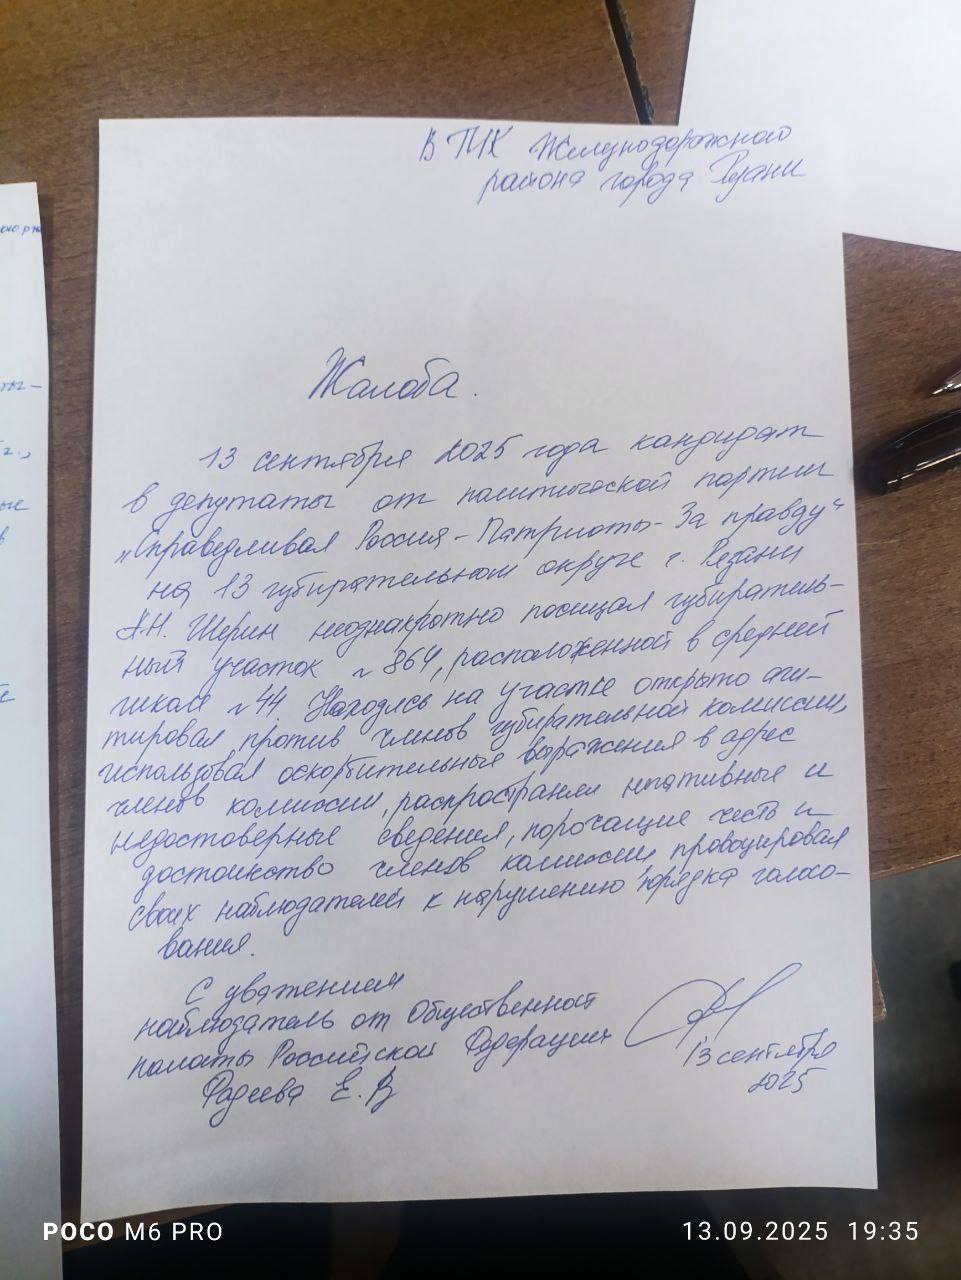 В ТИК Железнодорожного
района города Рязани
Жалоба.
13 сентября 2025 года кандидат
в депутаты от политической партии
„Справедливая Россия - Патриоты - За правду"
на 13 губирательном округе г. Рязани
Шерин неоднакротно посищал губиратель-
ный участок №864, расположенной в средней
школе №44. Находясь на участке открыто аги-
тировал против членов губирательной комиссии,
использовал оскорбительные выражения в адрес
членов комиссии, распространял негативные и
недостоверные сведения, порочащие честь и
достоинство членов комиссии провоцировал
своих наблюдателей к нарушению порядка голосо-
вания.
С уважением
наблюдатель от Общественной
палаты Российской Федерации
Фадеева Е.В
13 сентября
2025
POCO M6 PRO
13.09.2025 19:35